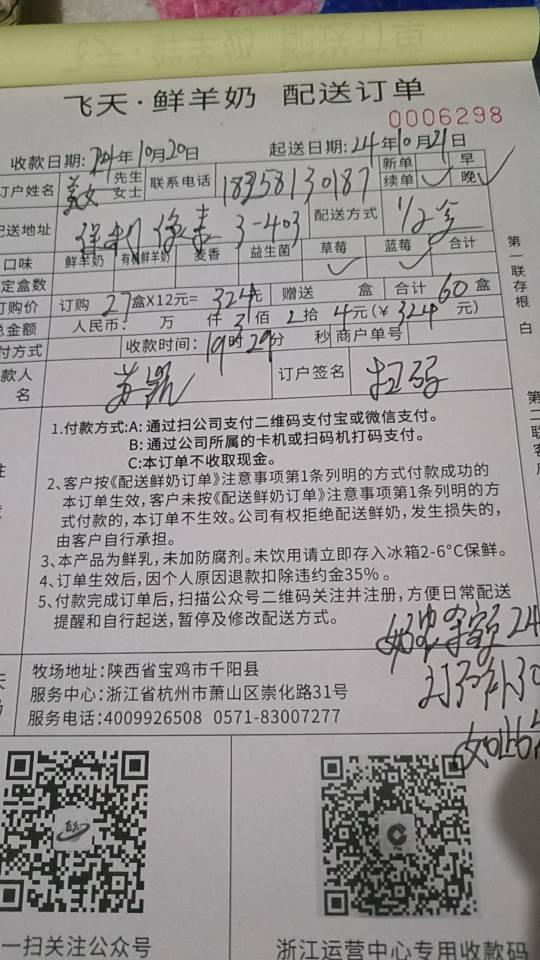 飞天·鲜羊奶 配送订单
0006298
收款日期:24年10月20日 起送日期:24年10月21日
订户姓名 先生 女士 联系电话 18358130187 新单 续单✓ 早 晚✓
配送地址 保利 3-403 配送方式 1/2盒
口味 鲜羊奶 有机鲜羊奶 麦香 益生菌 草莓 蓝莓 合计
定盒数 ✓ ✓
订购价 订购 27 盒X12元= 324元 赠送 盒 合计 60 盒
总金额 人民币: 万 仟 3佰 2拾 4元(¥ 324 元)
付方式 收款时间: 19时29分 秒 商户单号
款人 名 订户签名
第一联存根 白
1.付款方式:A: 通过扫公司支付二维码支付宝或微信支付。
B: 通过公司所属的卡机或扫码机打码支付。
C:本订单不收取现金。
2、客户按《配送鲜奶订单》注意事项第1条列明的方式付款成功的
本订单生效,客户未按《配送鲜奶订单》注意事项第1条列明的方
式付款的,本订单不生效。公司有权拒绝配送鲜奶,发生损失的,
由客户自行承担。
3、本产品为鲜乳,未加防腐剂。未饮用请立即存入冰箱2-6°C保鲜。
4、订单生效后,因个人原因退款扣除违约金35%。
5、付款完成订单后,扫描公众号二维码关注并注册,方便日常配送
提醒和自行起送,暂停及修改配送方式。
余额24
牧场地址:陕西省宝鸡市千阳县
服务中心:浙江省杭州市萧山区崇化路31号
服务电话:4009926508 0571-83007277
一扫关注公众号
浙江运营中心专用收款码